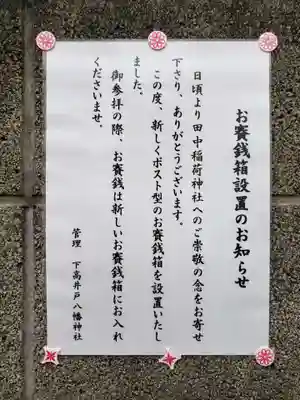 お賽銭箱設置のお知らせ
日頃より田中稲荷神社へのご崇敬の念をお寄せ
下さり、ありがとうございます。
この度、新しくポスト型のお賽銭箱を設置いたし
ました。
御参拝の際、お賽銭は新しいお賽銭箱にお入れ
くださいませ。
管理 下高井戸八幡神社